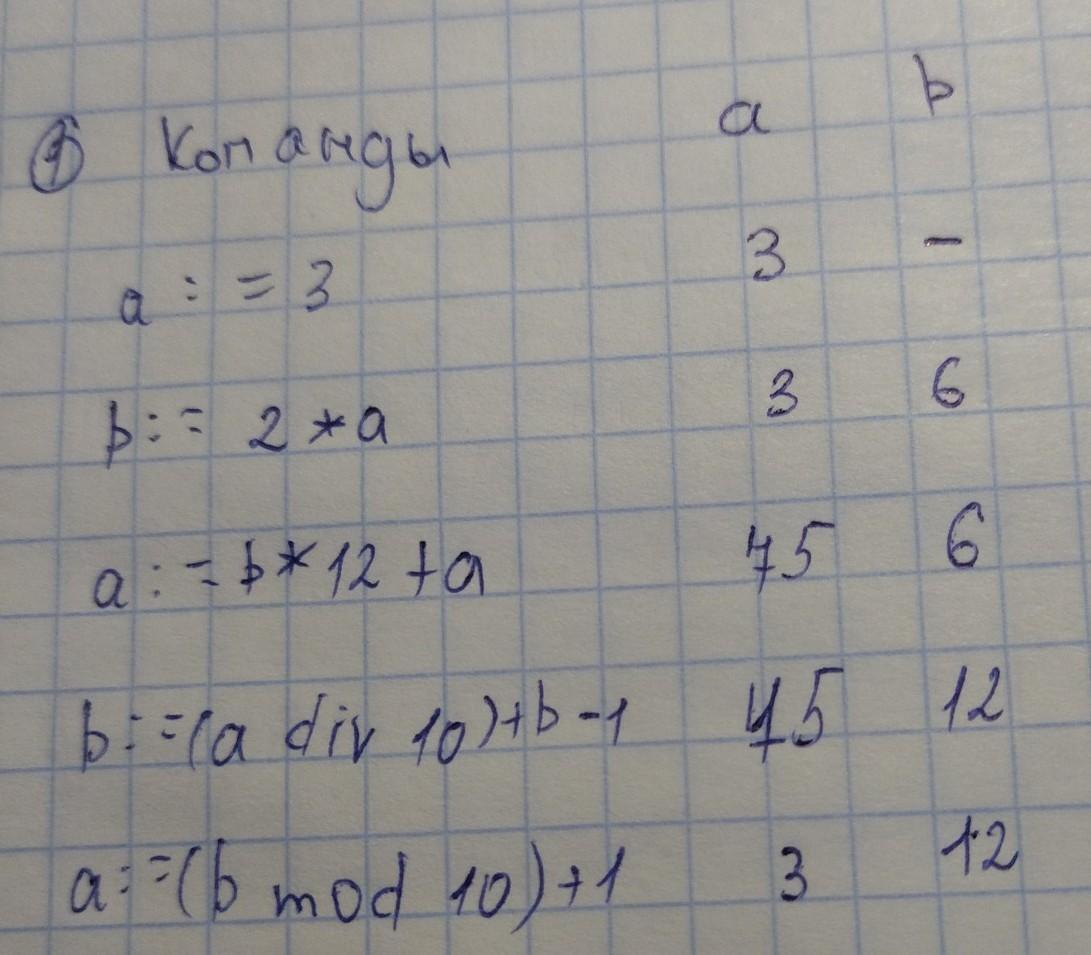 ① Команды a b
a := 3 3 -
b := 2 * a 3 6
a := b * 12 + a 75 6
b := (a div 10) + b - 1 75 12
a := (b mod 10) + 1 3 12